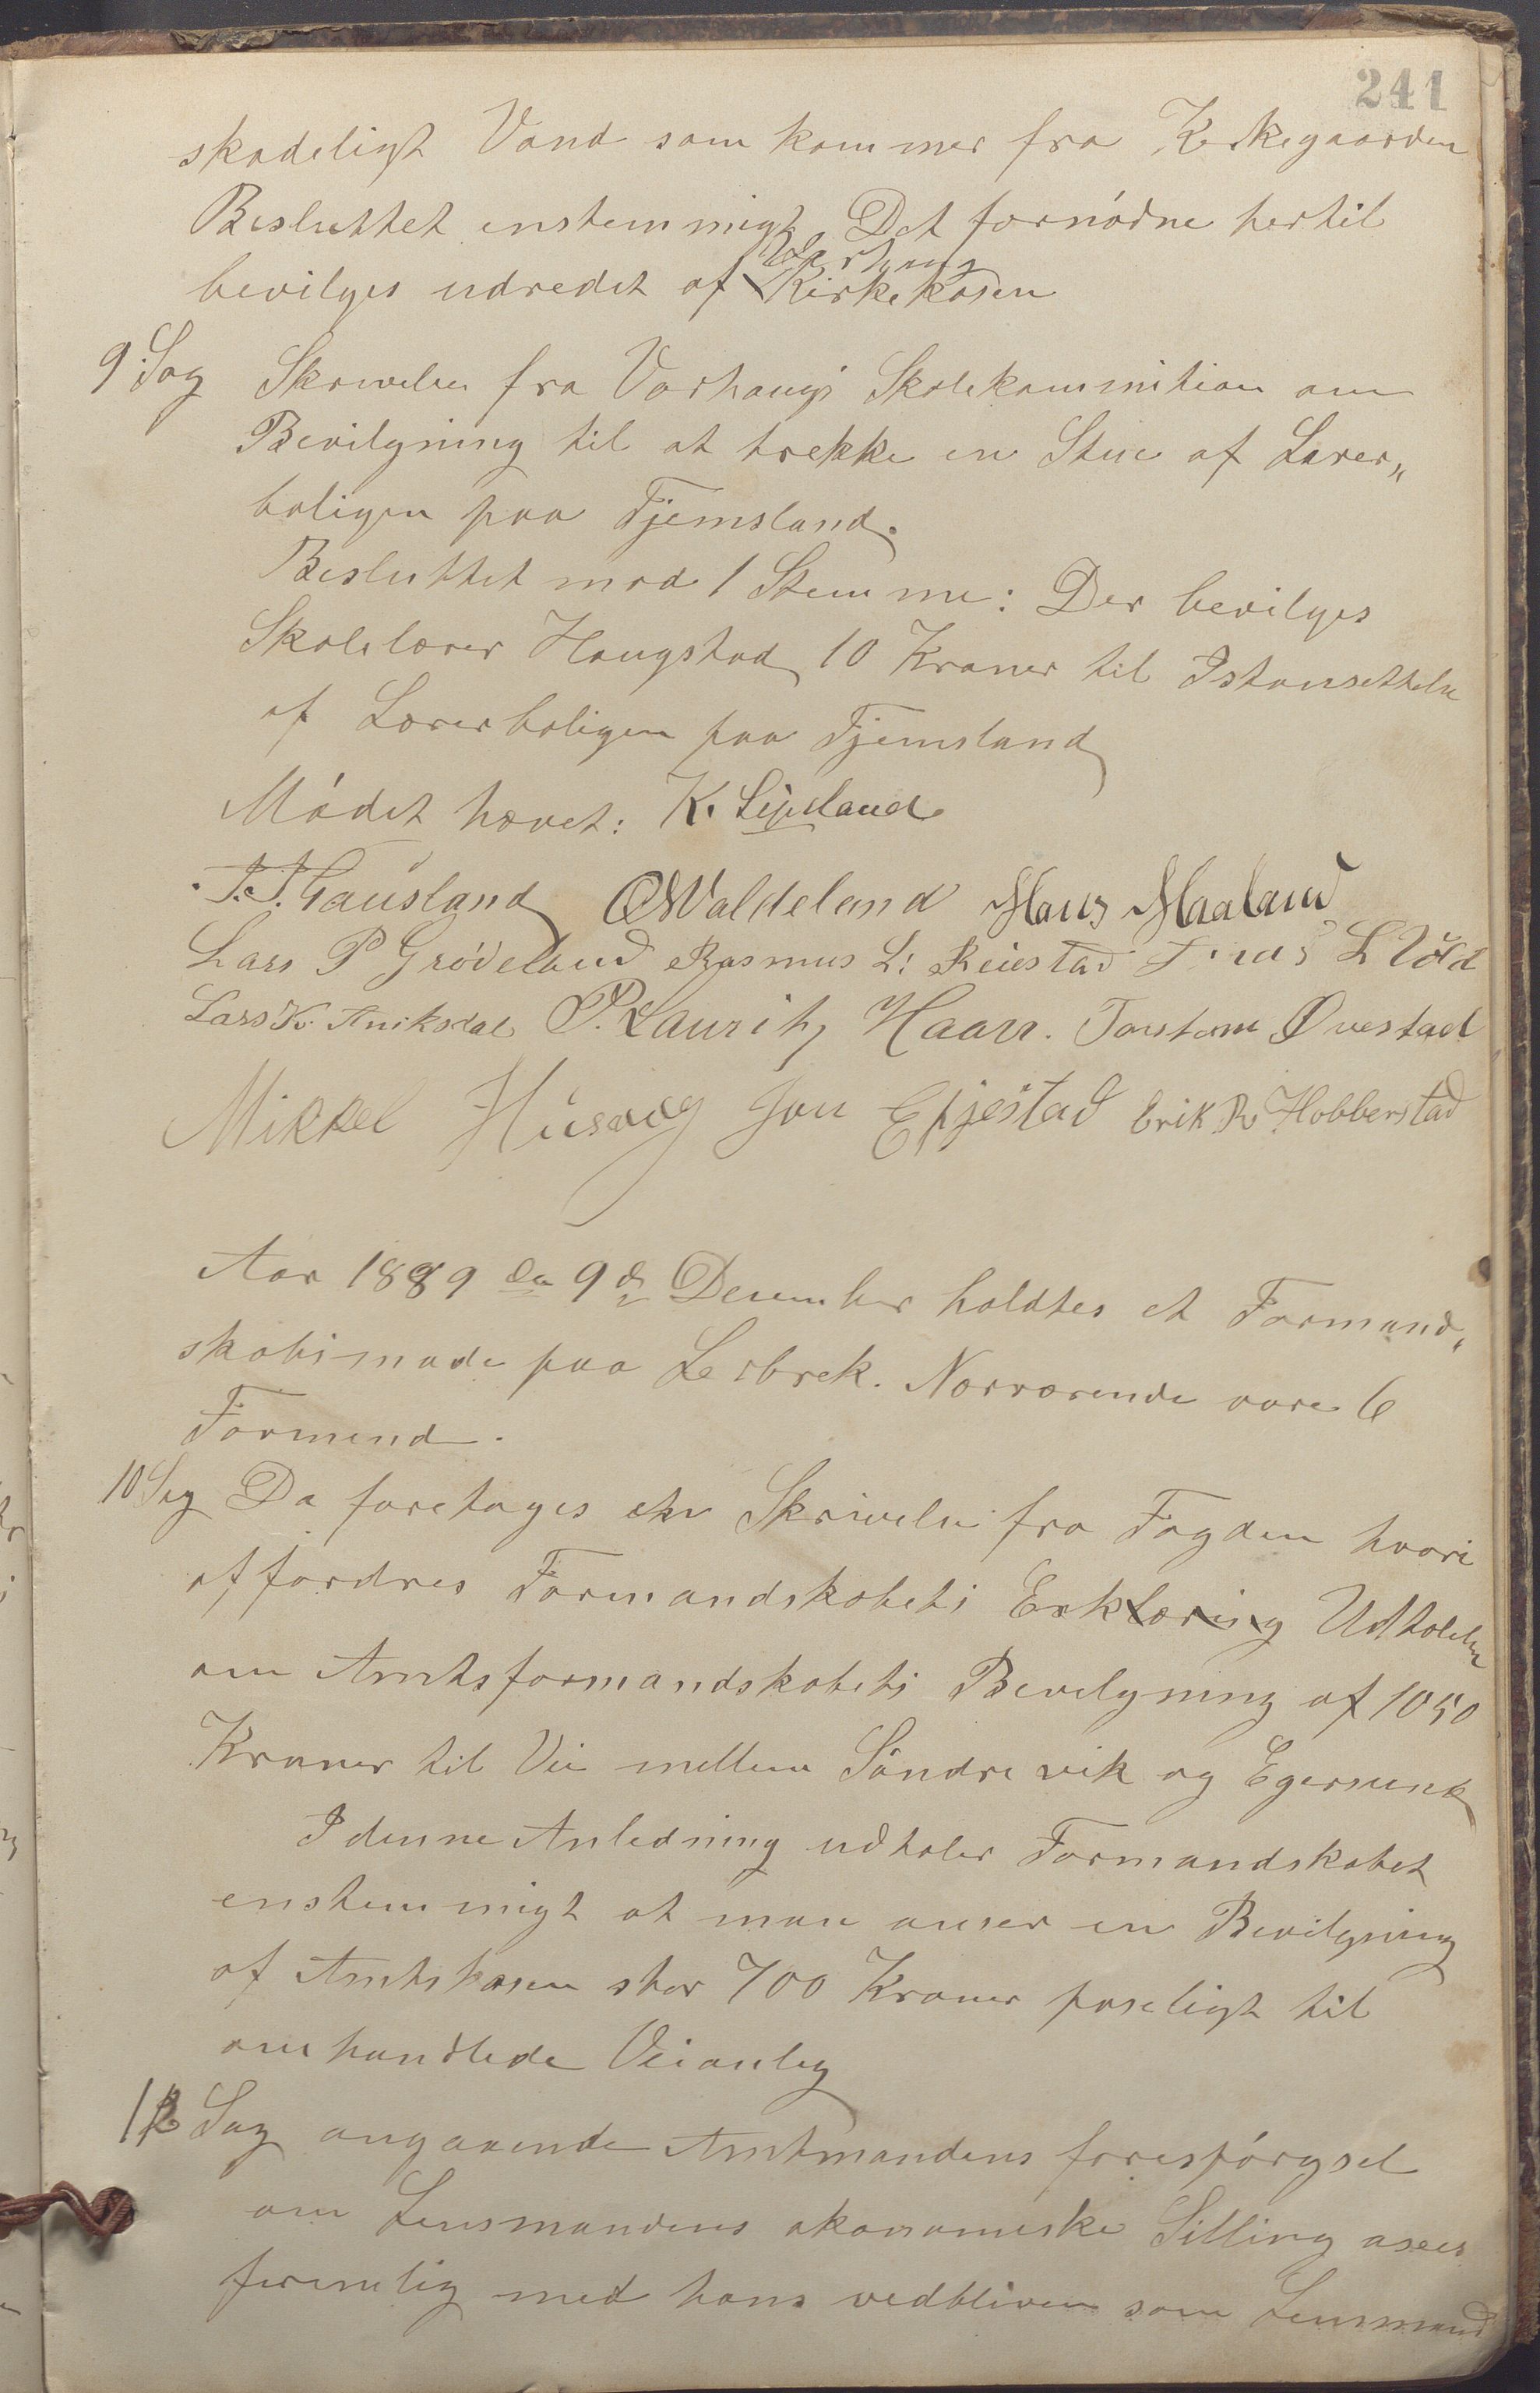 241
skadeligt Vand som kommer fra Kerkegaarden
Besluttet enstemmigt, Det fornódne hertil
Varhaug
bevilges udredet af Kirkekasen
9 Sag Skrivelse fra Varhaugs Skolekommition om
Bevilgning til at trekke en Stue af Lærer„
boligen paa Fjemsland.
Besluttet mod 1 Stemme: Der bevilges
Skolelærer Haugstad 10 Kroner til Istansettelse
af Lærerboligen paa Fjemsland
Módet hævet: K. Lipsland
T. T. Gausland O Waldeland Hans Maaland
Lars P Grødeland Rasmus L: Reiestad L Vold
Lars K. Aniksdal P. Lauritz Haarr. Torstein Øvestad
Mikkel Husvæg Jon Epjestad Erik R Hobberstad
Aar 1889 den 9de December holdtes et Formand„
skabsmøde paa Lerbrek. Nærværende vare 6
Formend.
10 Sag Da foretages en Skrivelse fra Fogden hvori
affordres Formandskabets Erklæring Udtalelse
om Amtsformandskabets Bevilgning af 1050
Kroner til Vei mellem Söndre vik og Egersund
I denne Anledning udtaler Formandskabet
enstemmigt at man anser en Bevilgning
af Amtskasen stor 700 Kroner paseligt til
omhandlede Veianleg
12 Sag angaaende Amtmandens forespórgsel
om Lensmandens økonomiske Stilling asees
forenelig med hans vedbliven som Lensmand